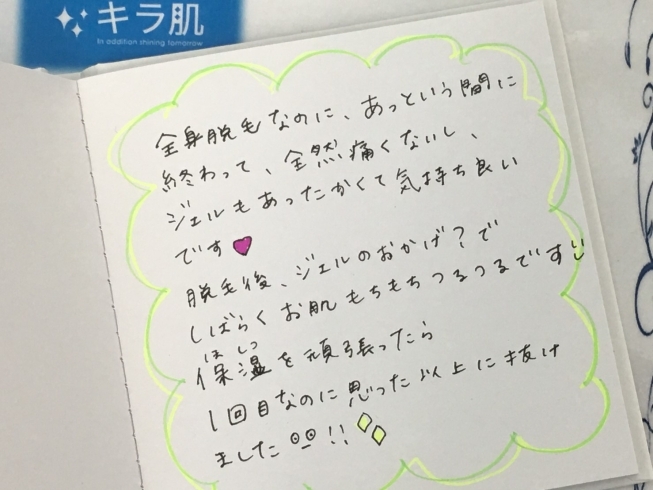 キラ肌
In addition shining tomorrow
全身脱毛なのに、あっという間に
終わって、全然痛くないし、
ジェルもあったかくて気持ち良い
です
脱毛後、ジェルのおかげ?で
しばらくお肌もちもちつるつるです
ほしつ
保湿を頑張ったら
1回目なのに思った以上に抜け
ました!!